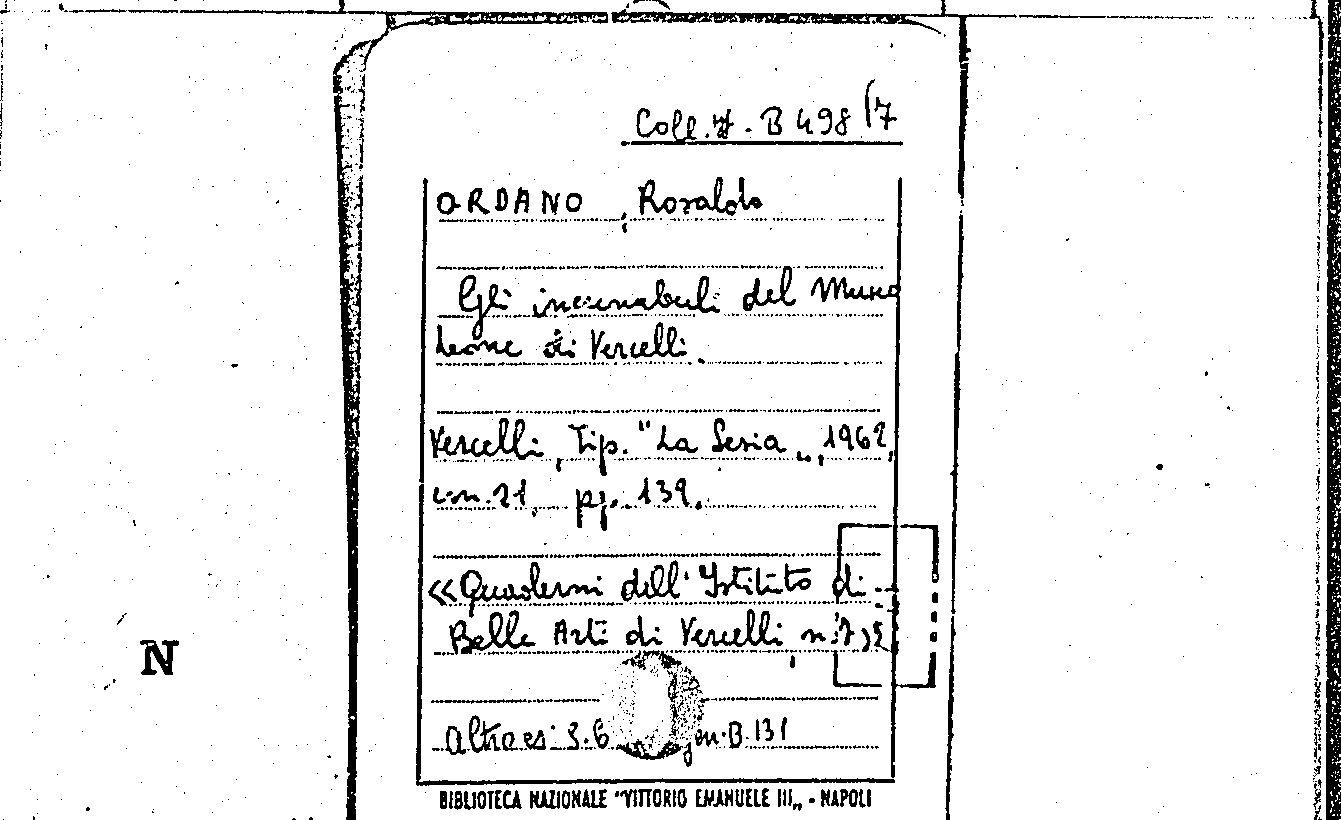 Coll. It. B 498/7
ORDANO, Rosaldo
Gli incunabuli del Museo
Leone di Vercelli.
Vercelli, Tip. "La Sesia", 1962,
cm. 21, pp. 139.
«Quaderni dell'Istituto di
Belle Arti di Vercelli, n. 7»
Altro es. 3.6 B. 131
BIBLIOTECA NAZIONALE "VITTORIO EMANUELE III" - NAPOLI
N